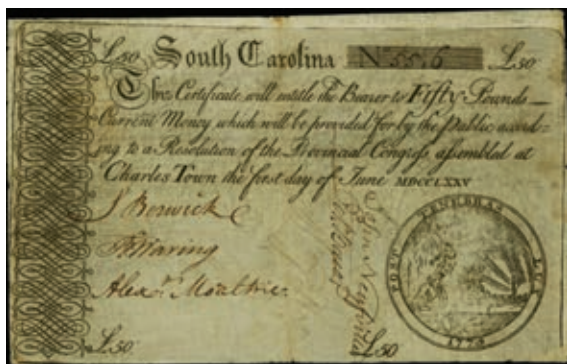 £50 South Carolina No 5516 £50
This Certificate will entitle the Bearer to Fifty Pounds
Current Money which will be provided for by the Public accord=
ing to a Resolution of the Provincial Congress assembled at
Charles Town the first day of June MDCCLXXV
Waring
Alexr. Moultrie
POST TENEBRAS LUX
1775
£50 £50